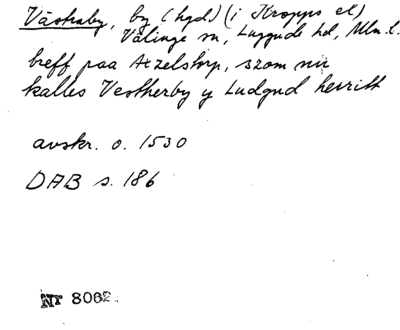 Västraby, by (hgd.) (i Kropps el)
Välinge sn, Luggude hd, Mlm. l.
breff paa Atzelstorp, szom nu
kalles Vestherby y Ludgud herritt
avskr. o. 1530
DAB s. 186
Nr 8062.